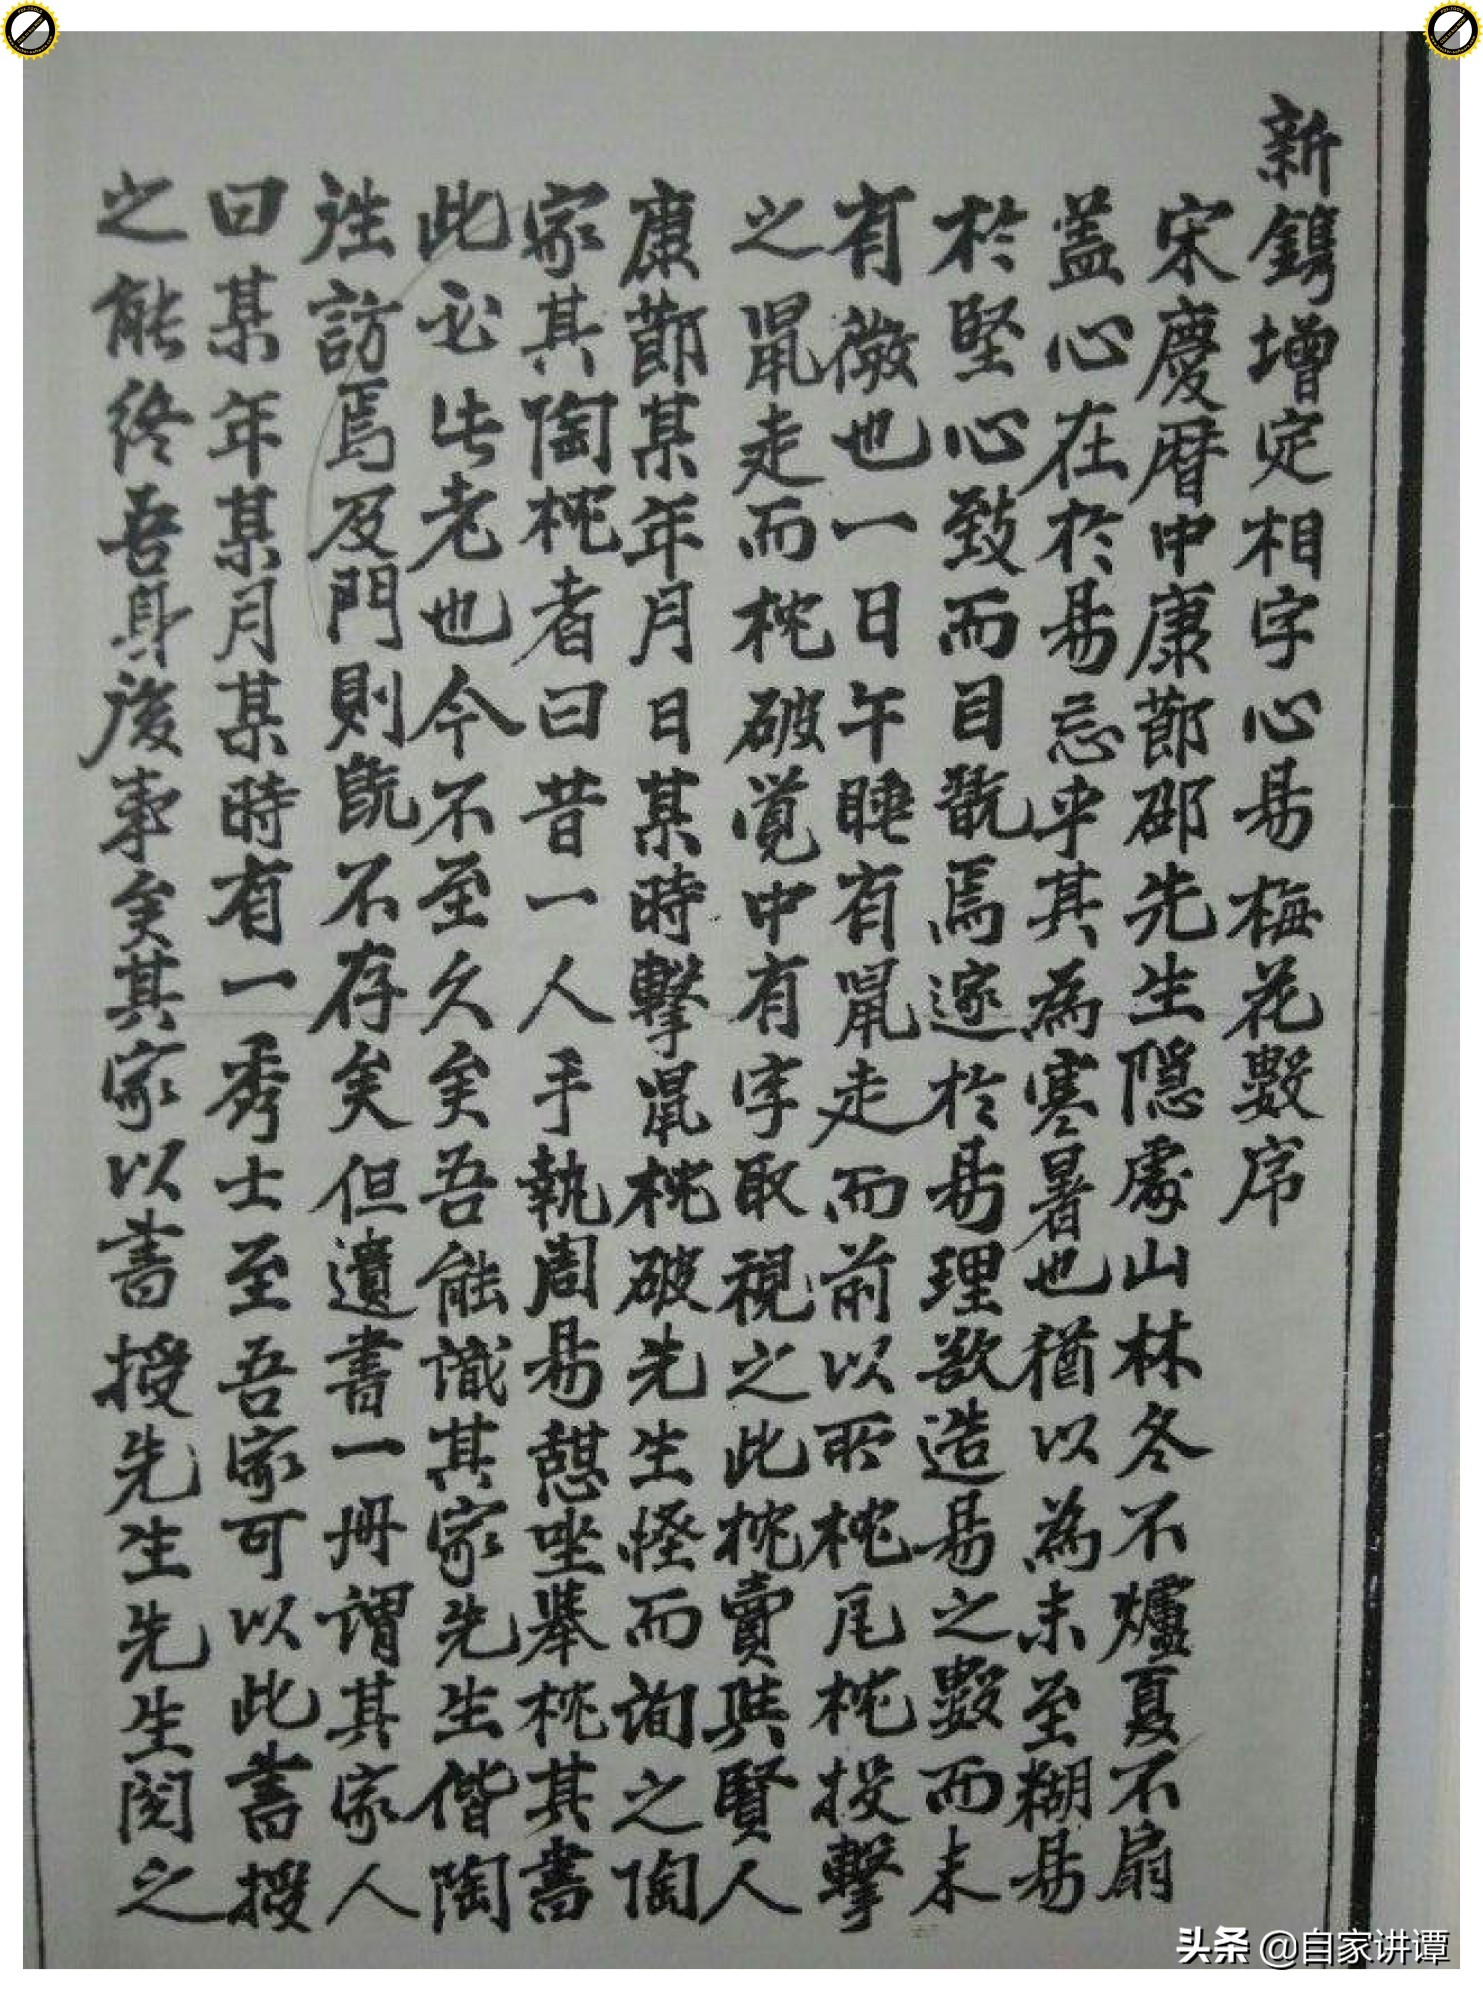 新鐫增定相字心易梅花數序
宋慶曆中康節邵先生隱處山林冬不爐夏不扇
蓋心在於易忘乎其為寒暑也猶以為未至糊易
於堅心致而目翫焉邃於易理欲造易之數而未
有徵也一日午睡有鼠走而前以所枕瓦枕投擊
之鼠走而枕破覚中有字取視之此枕賣與賢人
康節某年月日某時擊鼠枕破先生怪而詢之陶
家其陶枕者曰昔一人手執周易憩坐舉枕其書
此必此老也今不至久矣吾能識其家先生偕陶
往訪焉及門則既不存矣但遺書一冊謂其家人
曰某年某月某時有一秀士至吾家可以此書授
之能終吾身後事矣其家以書授先生先生閱之
头条 @自家讲谭